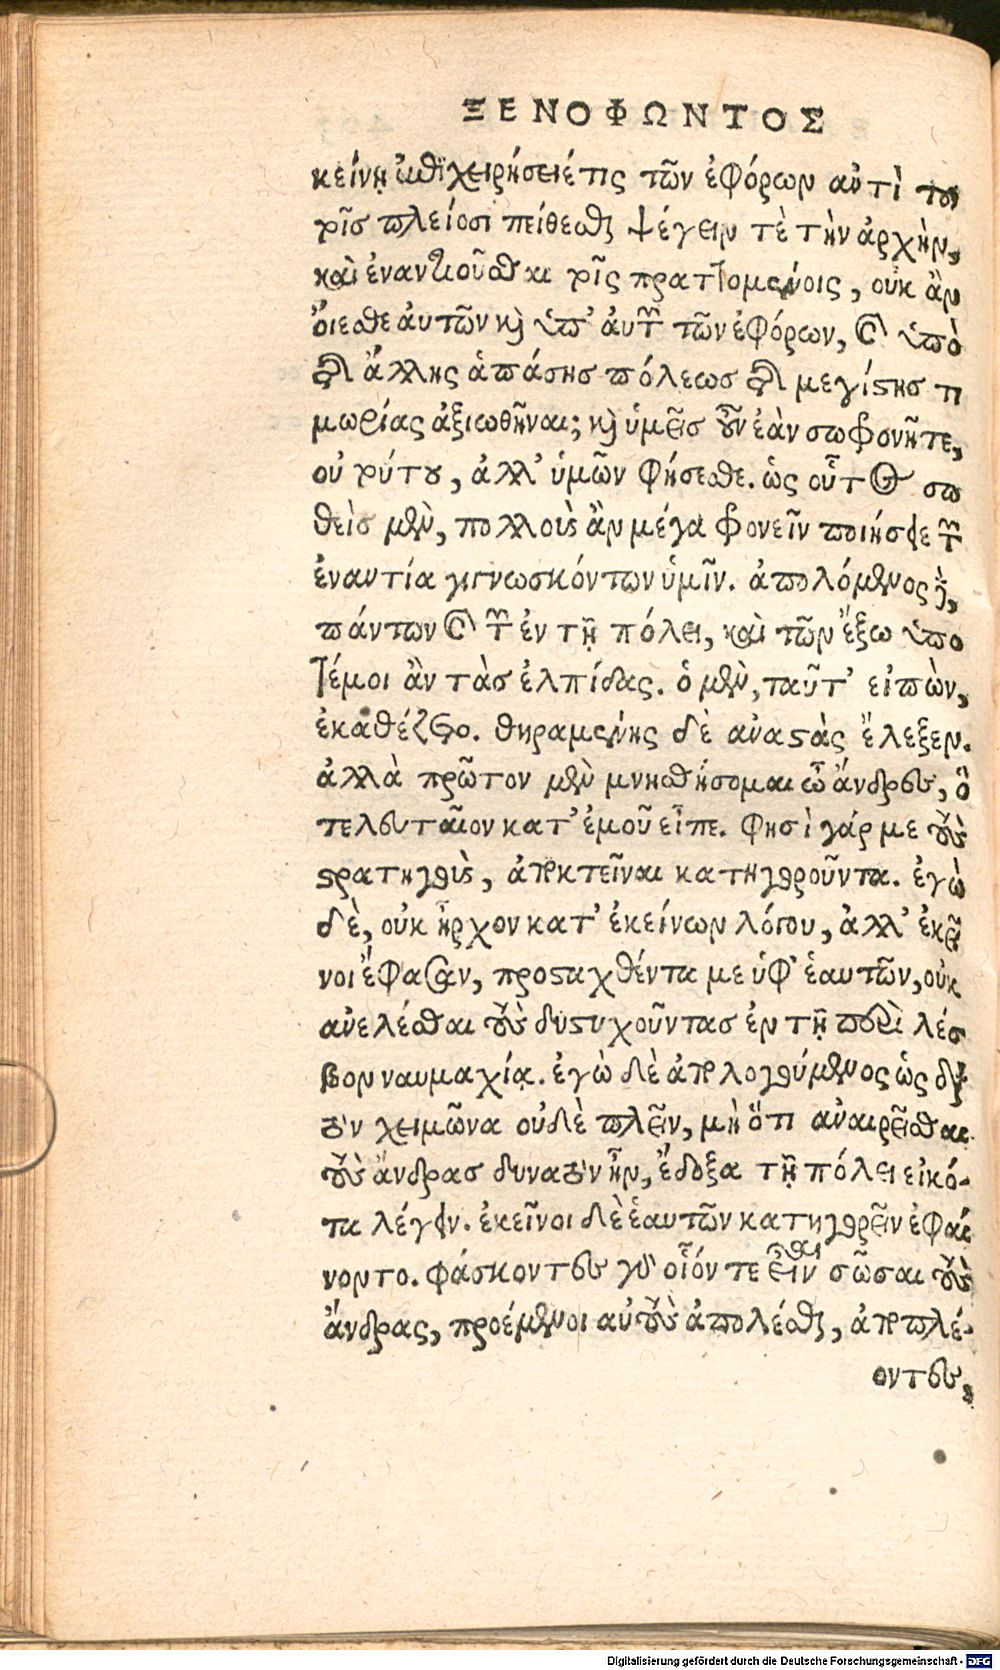 ΞΕΝΟΦΩΝΤΟΣ
κείνῃ ἐπιχειρήσειέ τις τῶν ἐφόρων ἀντὶ τοῦ
τοῖς πλείοσι πείθεσθαι ψέγειν τὲ τὴν ἀρχὴν,
καὶ ἐναντιοῦσθαι τοῖς πραττομένοις, οὐκ ἂν
οἴεσθε ἀυτῶν καὶ ὑπ' ἀυτῶν τῶν ἐφόρων, καὶ ὑπὸ
τῆς ἄλλης ἁπάσης πόλεως τῆς μεγίστης τι
μωρίας ἀξιωθῆναι; καὶ ὑμεῖς οὖν ἐὰν σωφρονῆτε,
οὐ τούτου, ἀλλ' ὑμῶν φήσεσθε. ὡς οὗτος σω
θεὶς μὲν, πολλοὺς ἂν μέγα φρονεῖν ποιήσειε τῶν
ἐναντία γιγνωσκόντων ὑμῖν. ἀπολόμενος δὲ,
πάντων καὶ τῶν ἐν τῇ πόλει, καὶ τῶν ἔξω ὑπο
τέμοι ἂν τὰς ἐλπίδας. ὁ μὲν, ταῦτ' εἰπὼν,
ἐκαθέζετο. θηραμένης δὲ ἀναστὰς ἔλεξεν.
ἀλλὰ πρῶτον μὲν μνησθήσομαι ὦ ἄνδρες, ὃ
τελευταῖον κατ' ἐμοῦ εἶπε. φησὶ γάρ με τοὺς
στρατηγοὺς, ἀποκτεῖναι κατηγοροῦντα. ἐγὼ
δὲ, οὐκ ἦρχον κατ' ἐκείνων λόγου, ἀλλ' ἐκεῖ
νοι ἔφασαν, προσταχθέντα με ὑφ' ἑαυτῶν, οὐκ
ἀνελέσθαι τοὺς δυστυχοῦντας ἐν τῇ περὶ λέσ
βον ναυμαχίᾳ. ἐγὼ δὲ ἀπολογούμενος ὡς διὰ
τὸν χειμῶνα οὐδὲ πλεῖν, μὴ ὅτι ἀναιρεῖσθαι
τοὺς ἄνδρας δυνατὸν ἦν, ἔδοξα τῇ πόλει εἰκό-
τα λέγειν. ἐκεῖνοι δὲ ἑαυτῶν κατηγορεῖν ἐφαί
νοντο. φάσκοντες γὰρ οἷόν τε εἶναι σῶσαι τοὺς
ἄνδρας, προέμενοι αὐτοὺς ἀπολέσθαι, ἀποπλέ-
οντες,
Digitalisierung gefördert durch die Deutsche Forschungsgemeinschaft - DFG